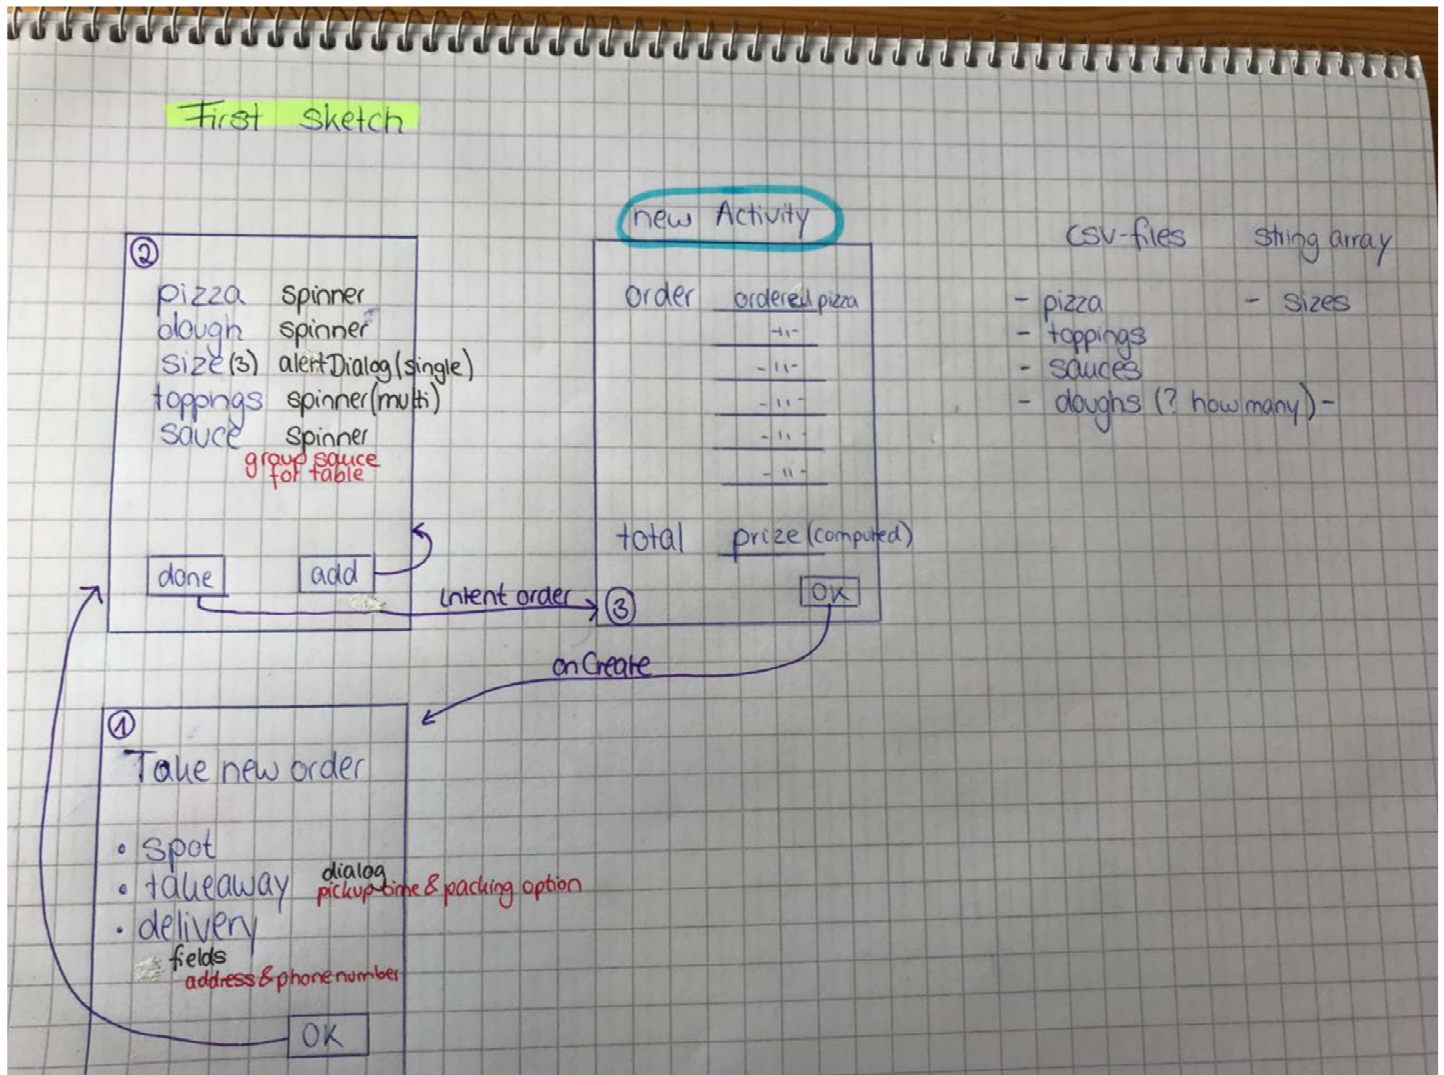 First sketch
②
pizza spinner
dough spinner
size (3) alertDialog (single)
toppings spinner (multi)
sauce spinner
group sauce
for table
done add
intent order
new Activity
order ordered pizza
-11-
-11-
-11-
-11-
-11-
total prize (computed)
③ OK
onCreate
csv-files string array
- pizza - sizes
- toppings
- sauces
- doughs (? how many) -
①
Take new order
• spot
• takeaway dialog
pickup time & packing option
• delivery
fields
address & phone number
OK